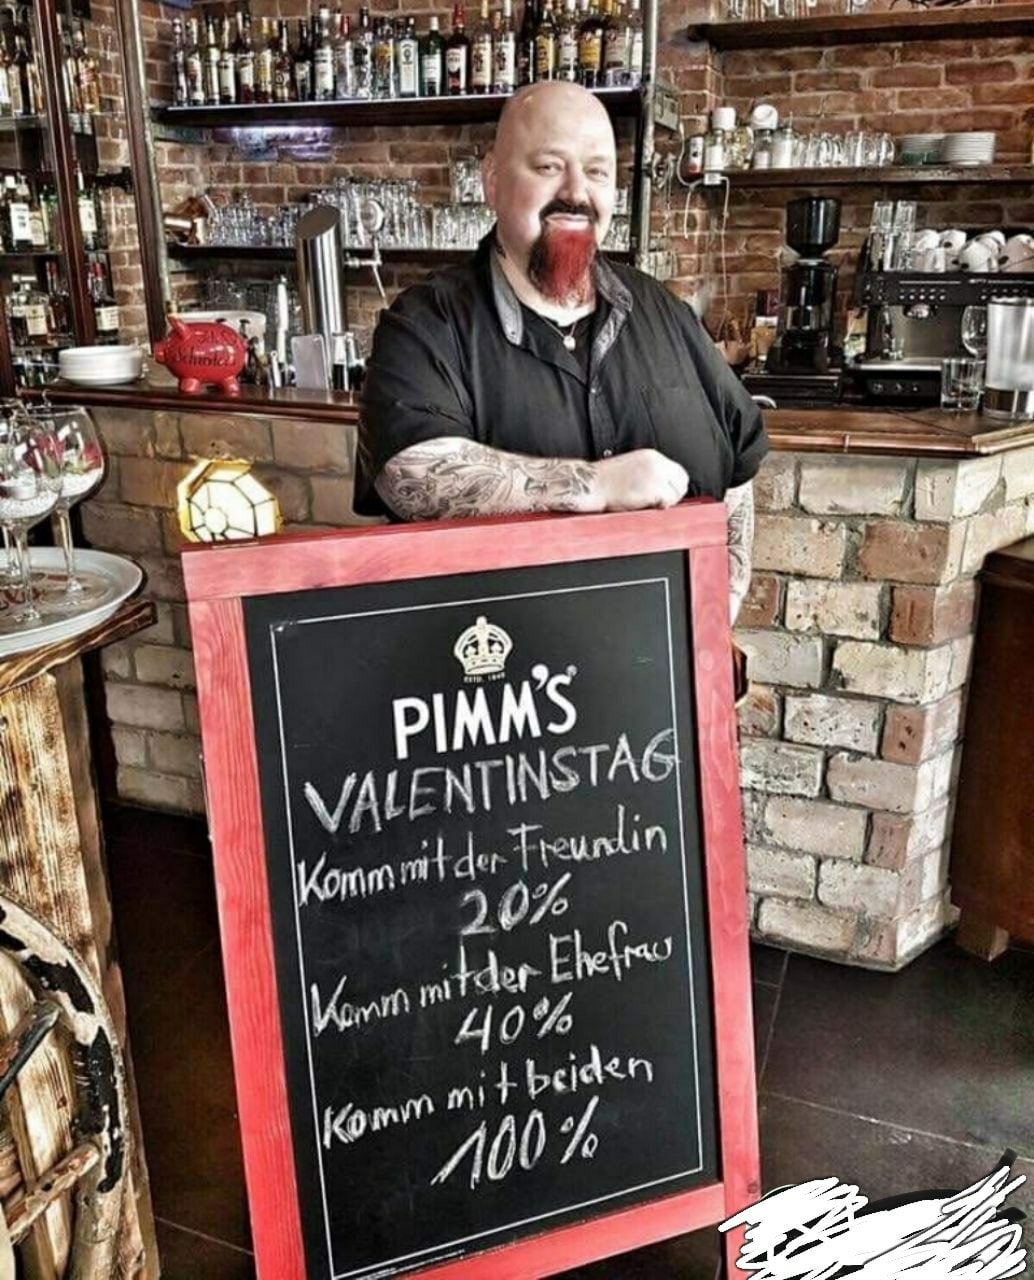 ESTD. 1840
PIMM'S
VALENTINSTAG
Komm mit der Freundin
20%
Komm mit der Ehefrau
40%
Komm mit beiden
100%